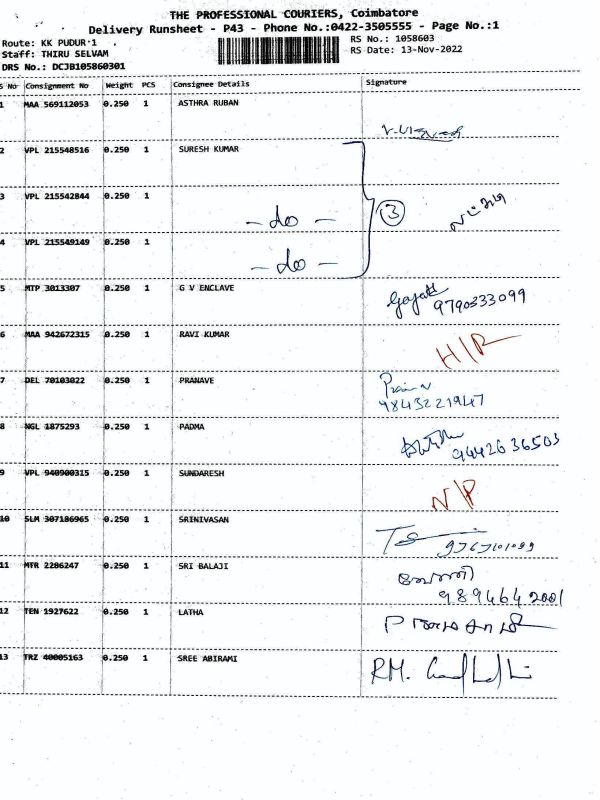 THE PROFESSIONAL COURIERS, Coimbatore
Delivery Runsheet - P43 - Phone No.:0422-3505555 - Page No.:1
Route: KK PUDUR 1
RS No.: 1058603
Staff: THIRU SELVAM
RS Date: 13-Nov-2022
DRS No.: DCJB105860301
S No Consignment No Weight PCS Consignee Details Signature
1 MAA 569112053 0.250 1 ASTHRA RUBAN
2 VPL 215548516 0.250 1 SURESH KUMAR
3 VPL 215542844 0.250 1 - do - 3
4 VPL 215549149 0.250 1 - do -
5 MTP 3013307 0.250 1 G V ENCLAVE
9790333099
6 MAA 942672315 0.250 1 RAVI KUMAR H/R
7 DEL 70103022 0.250 1 PRANAVE
9843221947
8 NGL 1875293 0.250 1 PADMA 9442636503
9 VPL 940900315 0.250 1 SUNDARESH N/P
10 SLM 307186965 0.250 1 SRINIVASAN
11 MFR 2286247 0.250 1 SRI BALAJI
9894642001
12 TEN 1927622 0.250 1 LATHA
13 TRZ 40005163 0.250 1 SREE ABIRAMI RM.